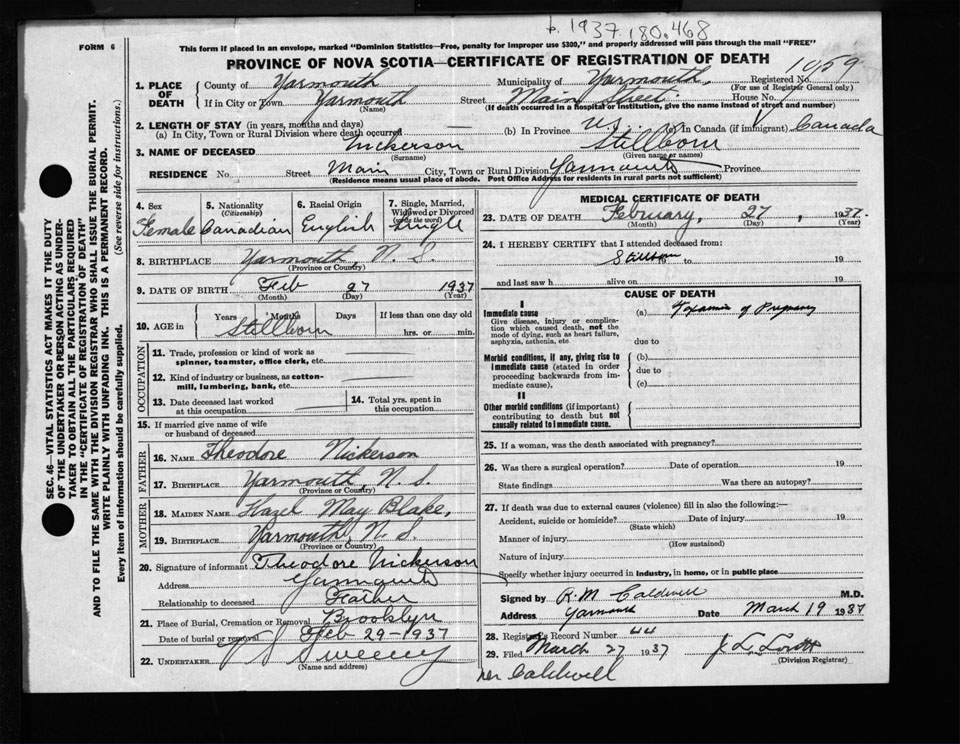 p. 1937.180.468
FORM 6
This form if placed in an envelope, marked "Dominion Statistics—Free, penalty for improper use $300," and properly addressed will pass through the mail "FREE"
PROVINCE OF NOVA SCOTIA—CERTIFICATE OF REGISTRATION OF DEATH
1. PLACE OF DEATH County of Yarmouth Municipality of Yarmouth Registered No. 1059
(For use of Registrar General only)
If in City or Town Yarmouth Street Main Street House No.
(Name) (If death occurred in a hospital or institution, give the name instead of street and number)
2. LENGTH OF STAY (in years, months and days)
(a) In City, Town or Rural Division where death occurred — (b) In Province (c) In Canada (if immigrant) Canada
3. NAME OF DECEASED Nickerson Stillborn
(Surname) (Given name or names)
RESIDENCE No. Street Main City, Town or Rural Division Yarmouth Province
(Residence means usual place of abode. Post Office Address for residents in rural parts not sufficient.)
SEC. 46—VITAL STATISTICS ACT MAKES IT THE DUTY
OF THE UNDERTAKER OR PERSON ACTING AS UNDER-
TAKER TO OBTAIN ALL THE PARTICULARS REQUIRED
IN THE "CERTIFICATE OF REGISTRATION OF DEATH"
AND TO FILE THE SAME WITH THE DIVISION REGISTRAR WHO SHALL ISSUE THE BURIAL PERMIT.
WRITE PLAINLY WITH UNFADING INK. THIS IS A PERMANENT RECORD.
Every item of information should be carefully supplied. (See reverse side for instructions.)
4. Sex 5. Nationality (Citizenship) 6. Racial Origin 7. Single, Married, Widowed or Divorced (write the word)
Female Canadian English Single
8. BIRTHPLACE Yarmouth, N. S.
(Province or Country)
9. DATE OF BIRTH Feb 27 1937
(Month) (Day) (Year)
10. AGE in Years Months Days If less than one day old
Stillborn hrs. or min.
OCCUPATION
11. Trade, profession or kind of work as spinner, teamster, office clerk, etc.
12. Kind of industry or business, as cotton-mill, lumbering, bank, etc.
13. Date deceased last worked at this occupation 14. Total yrs. spent in this occupation
15. If married give name of wife or husband of deceased
FATHER
16. NAME Theodore Nickerson
17. BIRTHPLACE Yarmouth, N. S.
(Province or Country)
MOTHER
18. MAIDEN NAME Hazel May Blake,
19. BIRTHPLACE Yarmouth, N. S.
(Province or Country)
20. Signature of informant Theodore Nickerson
Address Yarmouth
Relationship to deceased Father
21. Place of Burial, Cremation or Removal Brooklyn
Date of burial or removal Feb 29-1937
22. UNDERTAKER Sweeny
(Name and address)
MEDICAL CERTIFICATE OF DEATH
23. DATE OF DEATH February, 27, 1937.
(Month) (Day) (Year)
24. I HEREBY CERTIFY that I attended deceased from:
Stillborn 19 to 19
and last saw h alive on 19
CAUSE OF DEATH
I
Immediate cause (a) Toxaemia of Pregnancy
Give disease, injury or complication which caused death, not the mode of dying, such as heart failure, asphyxia, asthenia, etc.
due to
Morbid conditions, if any, giving rise to immediate cause (stated in order proceeding backwards from immediate cause).
(b)
due to
(c)
II
Other morbid conditions (if important) contributing to death but not causally related to immediate cause.
25. If a woman, was the death associated with pregnancy?
26. Was there a surgical operation? Date of operation 19
State findings Was there an autopsy?
27. If death was due to external causes (violence) fill in also the following:—
Accident, suicide or homicide? Date of injury 19
(State which)
Manner of injury
(How sustained)
Nature of injury
Specify whether injury occurred in industry, in home, or in public place
Signed by R. M Caldwell M.D.
Address Yarmouth Date March 19 1937
28. Registrar's Record Number 44
29. Filed March 27 1937 J. L. Lovitt
(Division Registrar)
per Caldwell